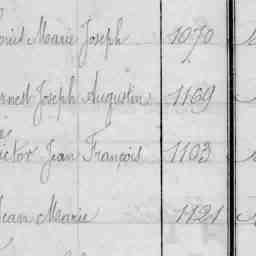 Marie Joseph 1070
Ernest Joseph Augustin 1169
Victor Jean François 1103
Jean Marie 1121